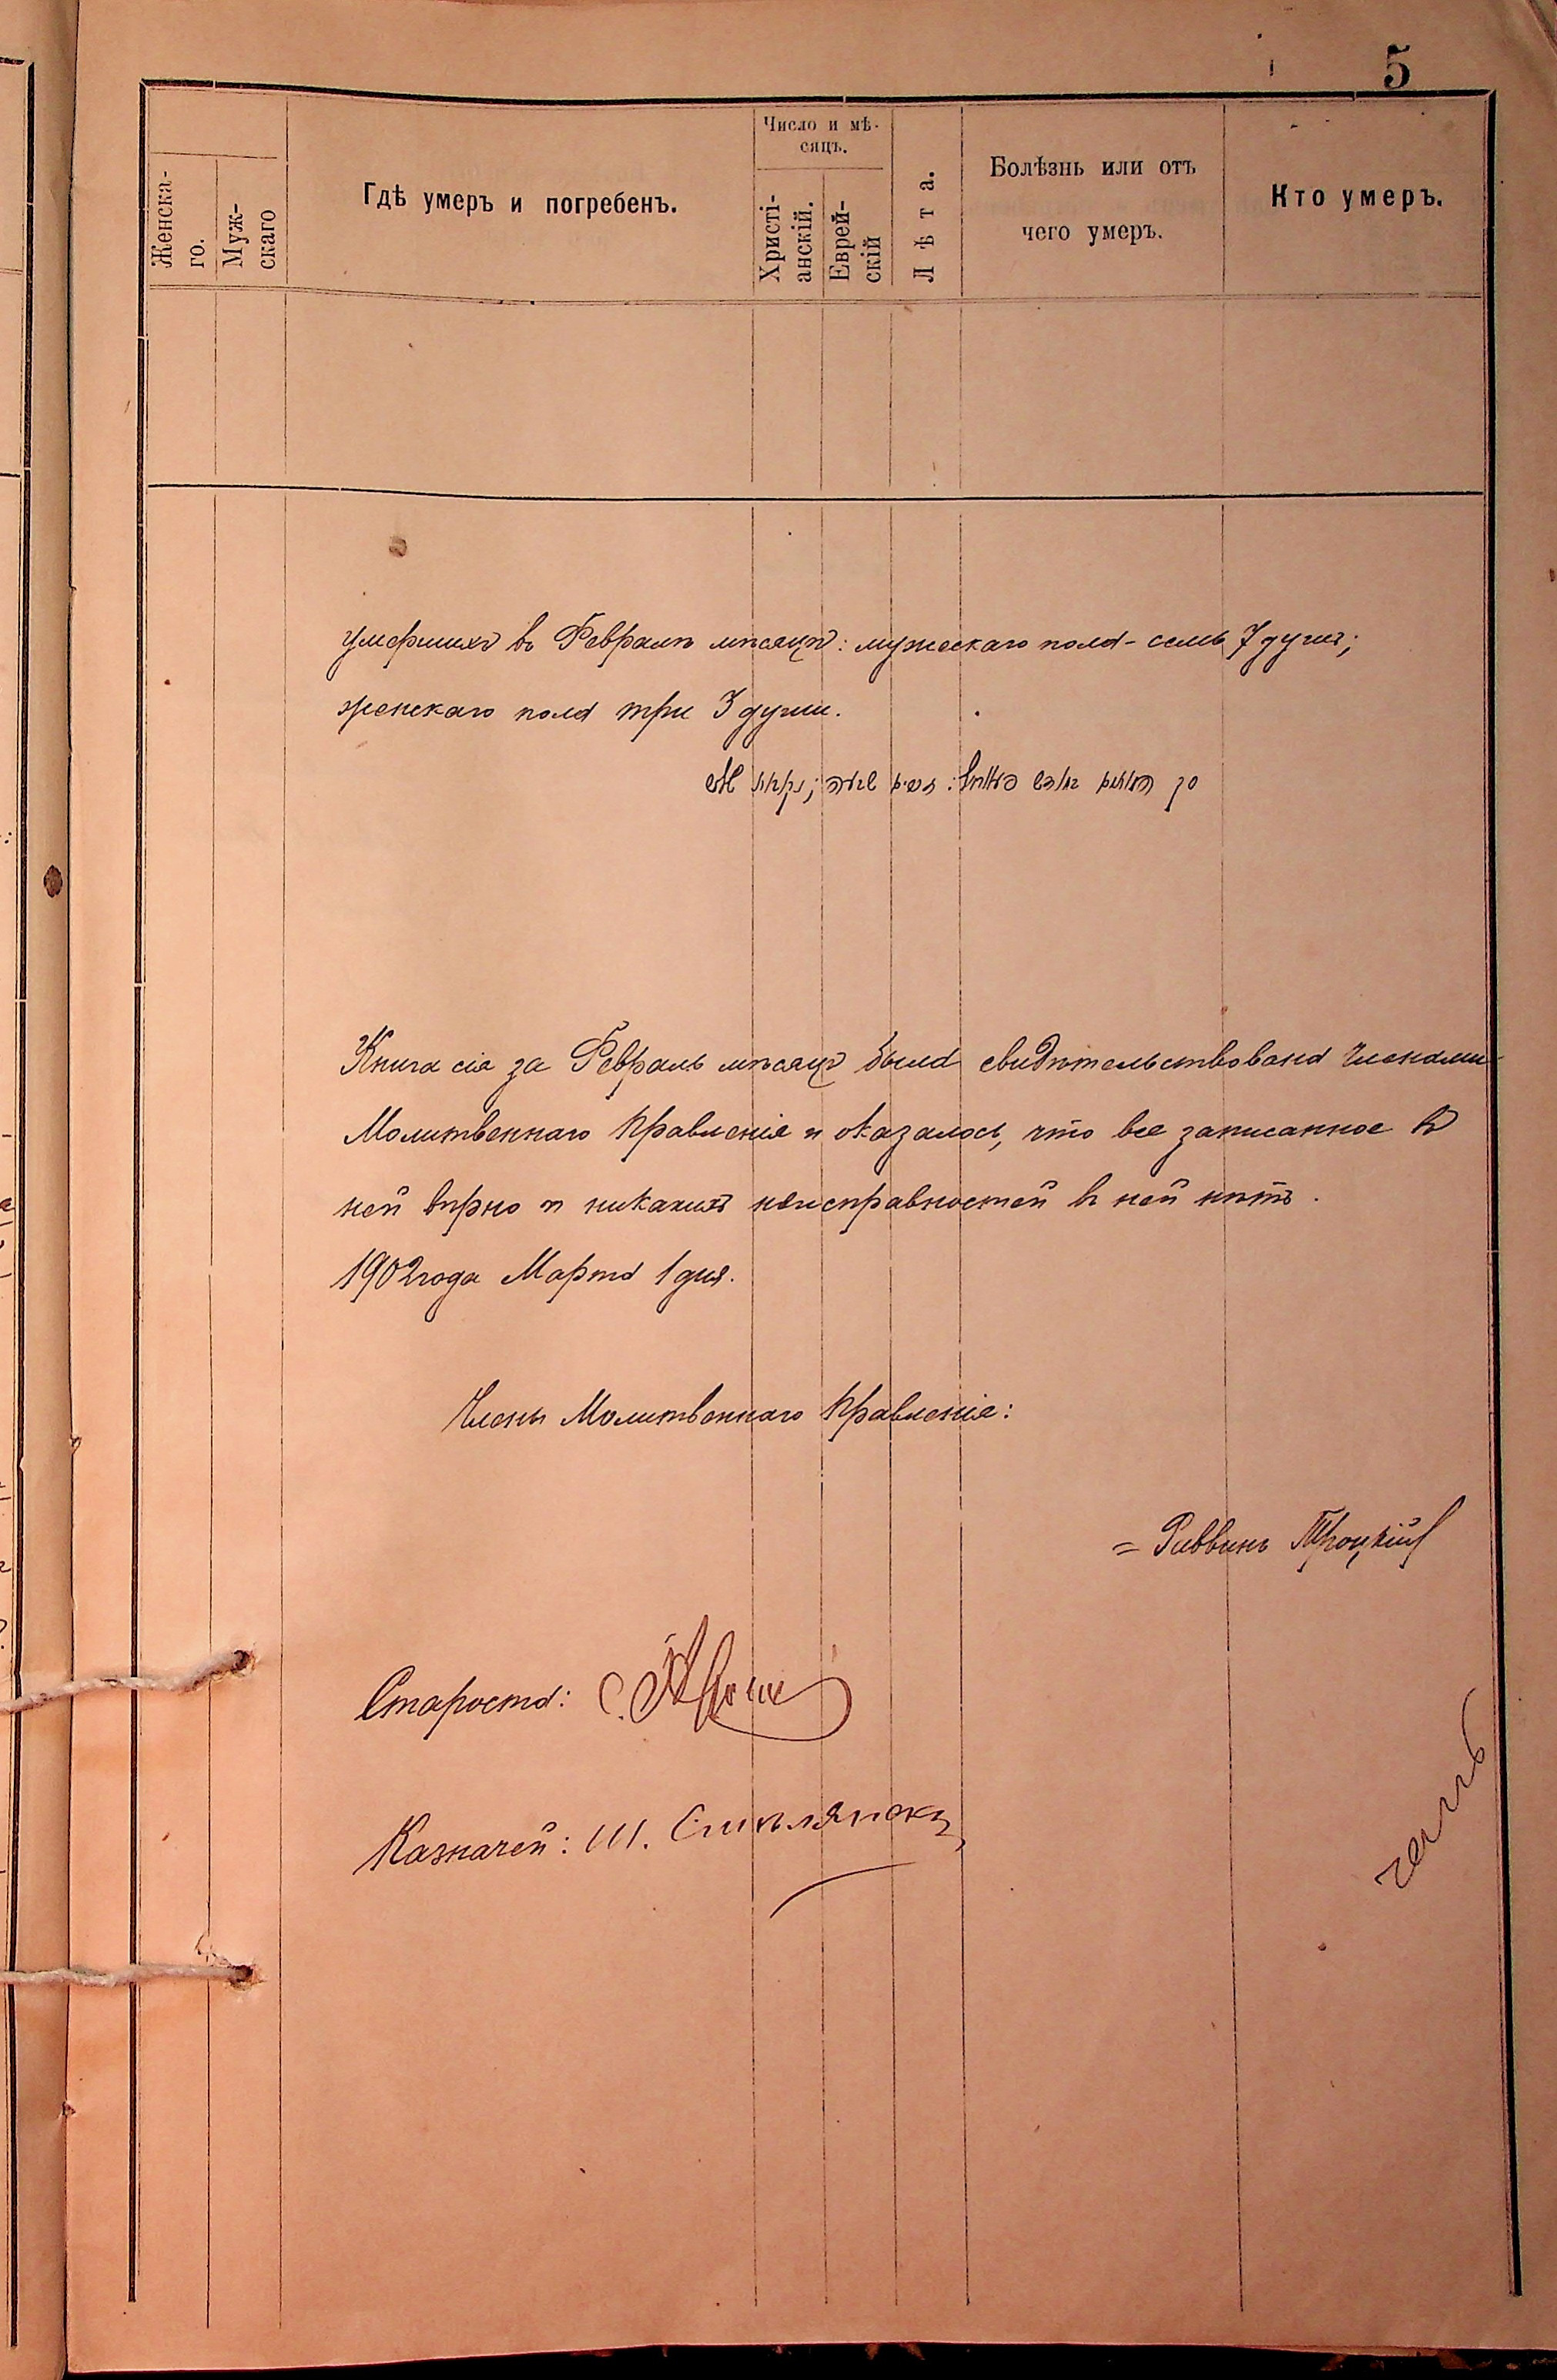 5
Женска-
го.
Муж-
скаго
Гдѣ умеръ и погребенъ.
Число и мѣ-
сяцъ.
Христі-
анскій.
Еврей-
скій
Лѣта.
Болѣзнь или отъ
чего умеръ.
Кто умеръ.
Умершихъ въ Февралѣ мѣсяцѣ: мужескаго пола - семь 7 душъ;
женскаго пола три 3 души.
Книга сія за Февраль мѣсяцъ была свидѣтельствована Членами
Молитвеннаго Правленія и оказалось, что все записанное въ
ней вѣрно и никакихъ неисправностей въ ней нѣтъ.
1902 года Марта 1 дня.
Члены Молитвеннаго Правленія:
= Раввинъ Троцкій
Староста: С.
Казначей: Ш.